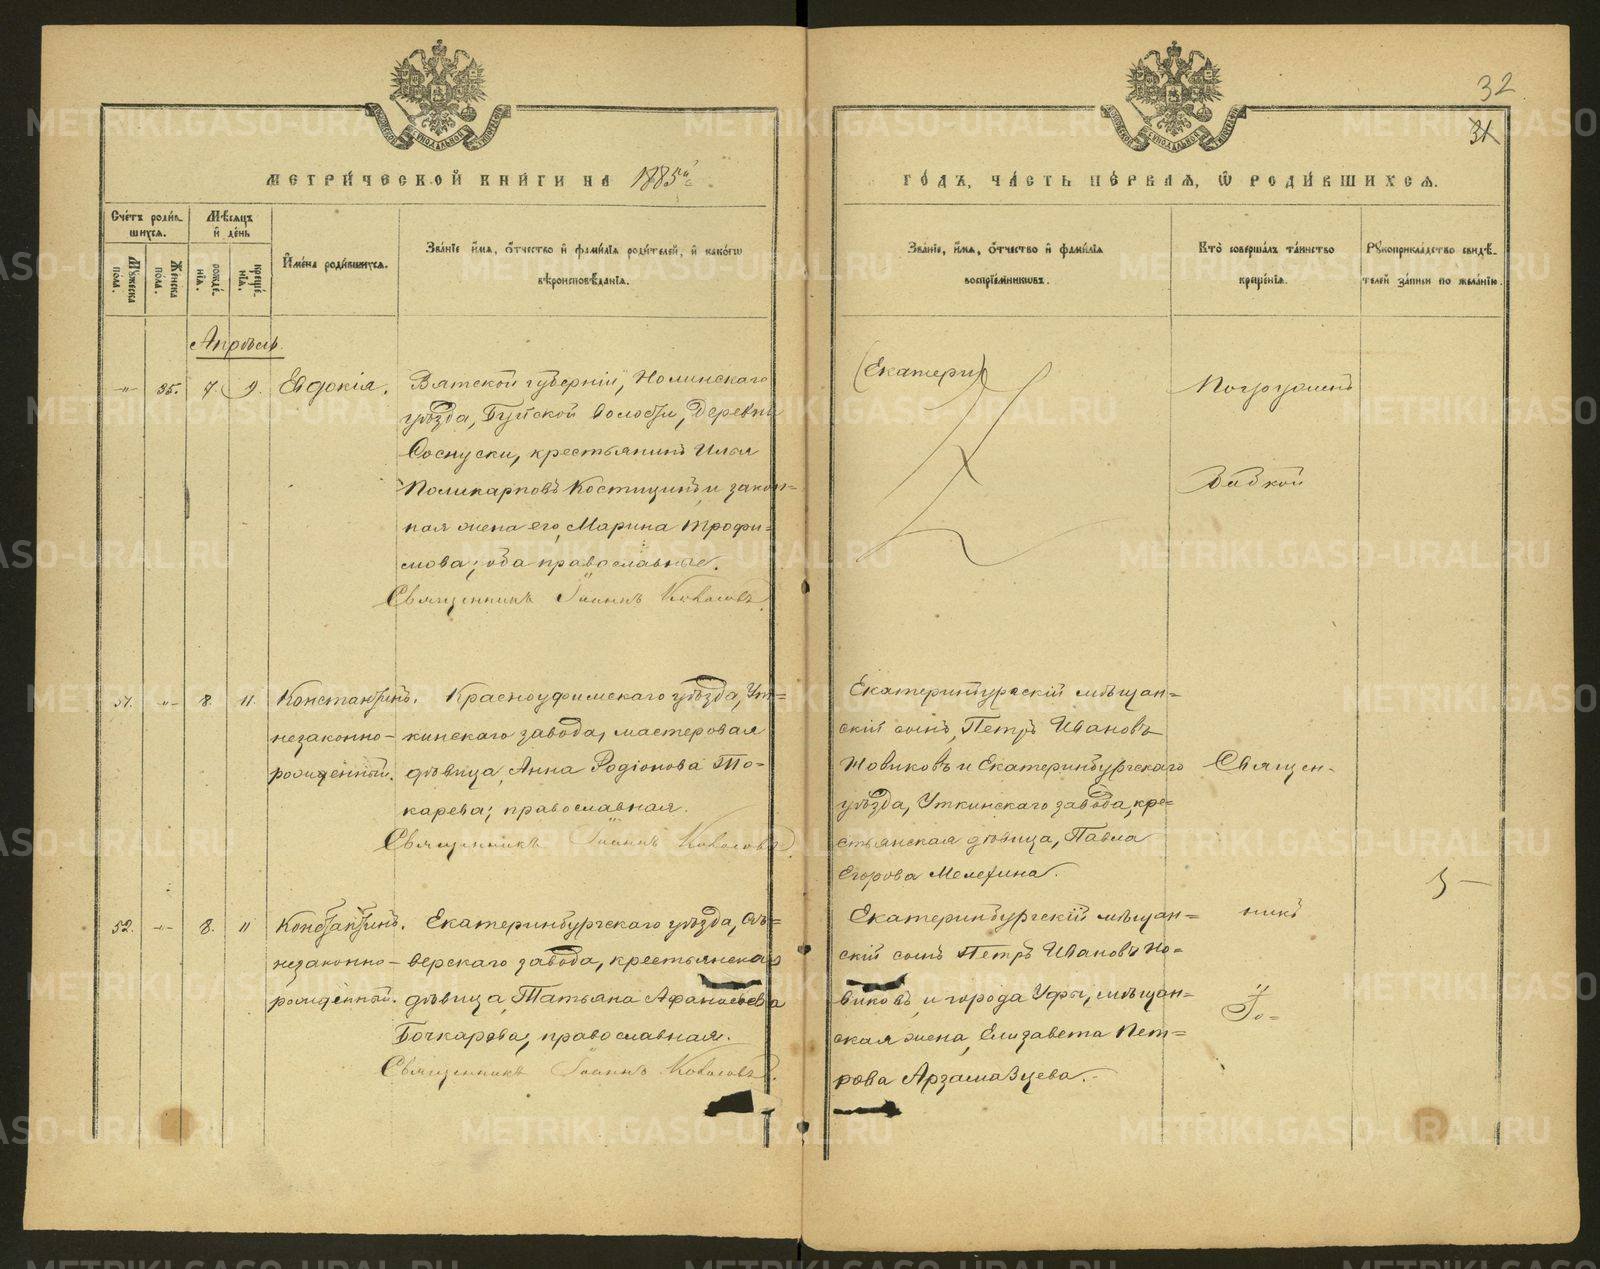 32
31
МЕТРИ́ЧЕСКОЙ КНИ́ГИ НА 1885й
ГО́ДЪ, ЧА́СТЬ ПЕ́РВАЯ, Ѽ РОДИ́ВШИХСЯ.
Сче́тъ роди́в-
шихся.
Мѣ́сяцъ
и҆ де́нь
Мꙋ́жеска по́ла.
Же́нска по́ла.
рожде́-нїя.
креще́-нїя.
И҆мена̀ роди́вшихся.
Зва́нїе и҆́мя, ѻ҆́тчество и҆ фами́лїя роди́телей, и҆ како́гѡ
вѣроисповѣ́данїя.
Зва́нїе, и҆́мя, ѻ҆́тчество и҆ фами́лїя
воспрїе́мниковъ.
Кто̀ соверша́лъ та́инство
креще́нїя.
Рꙋкоприкла́дство свидѣ́-
телей за́писи по жела́нїю.
Апрѣль
-„- 35. 7 9. Евдокія.
Вятской губерніи, Нолинскаго
уѣзда, Буйской волости, деревни
Соснуски, крестьянинъ Илья
Поликарповъ Костицинъ и закон=
ная жена его, Марина Трофи-
мова; оба православные.
Священникъ Іоаннъ Коваловъ.
(Екатерин)
Погруженъ
Бабкой
51. -„- 8. 11. Константинъ.
незаконно-
рожденный.
Красноуфимскаго уѣзда, Ут=
кинскаго завода, мастеровая
дѣвица, Анна Родіонова То-
карева; православная.
Священникъ Іоаннъ Коваловъ.
Екатеринбургскій мѣщан=
скій сынъ, Петръ Ивановъ
Новиковъ и Екатеринбургскаго
уѣзда, Уткинскаго завода, кре=
стьянская дѣвица, Павла
Егорова Мелехина.
Священ-
52. -„- 8. 11 Константинъ.
незаконно-
рожденный.
Екатеринбургскаго уѣзда, Сѣ=
верскаго завода, крестьянская
дѣвица, Татьяна Афанасьева
Бочкарева, православная.
Священникъ Іоаннъ Коваловъ.
Екатеринбургскій мѣщан=
скій сынъ Петръ Ивановъ Но=
виковъ и города Уфы, мѣщан=
ская жена, Елизавета Пет=
рова Арзамазцева.
никъ
Іо=
METRIKI.GASO-URAL.RU